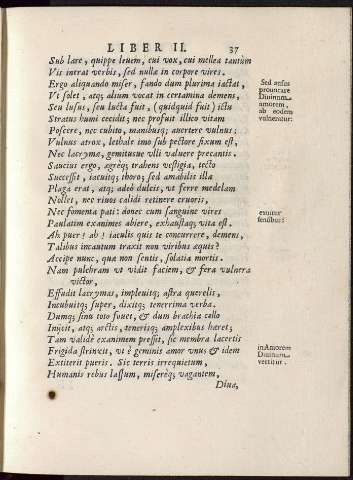 LIBER II. 37
Sub lare, quippe leuem, cui vox, cui mellea tantum
Vis intrat verbis, sed nulla in corpore vires.
Ergo aliquando miser, fando dum plurima iactat,
Vt solet, atq; alium vocat in certamina demens,
Seu lusus, seu lucta fuit, (quidquid fuit) ictu
Stratus humi cecidit; nec profuit illico vitam
Poscere, nec cubito, manibusq; auertere vulnus:
Vulnus atrox, lethale imo sub pectore fixum est,
Nec lacryma, gemitusue vlli valuere precantis.
Saucius ergo, agrèq; trahens vestigia, tecto
Successit, iacuitq; thoro; sed amabilis illa
Plaga erat, atq; adeò dulcis, vt ferre medelam
Nollet, nec riuos calidi retinere cruoris,
Nec fomenta pati: donec cum sanguine vires
Paulatim exanimes abiere, exhaustaq; vita est.
Ah puer! ah! iaculis quis te concurrere, demens,
Talibus incautum traxit non viribus aquis?
Accipe nunc, qua non sentis, solatia mortis.
Nam pulchram vt vidit faciem, & fera vulnera
victor,
Effudit lacrymas, impleuitq; astra querelis,
Incubuitq; super, dixitq; tenerrima verba.
Dumq; sinu toto fouet, & dum brachia collo
Inijcit, atq; arctis, tenerisq; amplexibus haret;
Tam validè exanimem pressit, sic membra lacertis
Frigida strinxit, vt è geminis amor vnus & idem
Extiterit pueris. Sic terris irrequietum,
Humanis rebus lassum, miserèq; vagantem,
Diua,
Sed ausus
prouocare
Diuinum
amorem,
ab eodem
vulneratur:
emiter
sensibus:
in Amorem
Diuinum
vertitur.